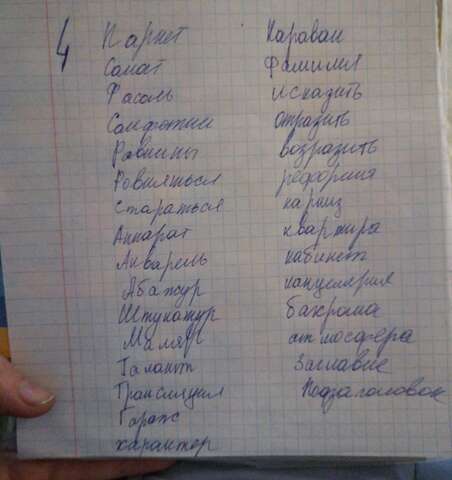 4
Паркет
Салат
Фасоль
Симфония
Равнины
Ровняться
Стараться
Аппарат
Акварель
Абажур
Штукатур
Маляр
Талант
Трансляция
Гараж
характер
Караван
Фамилия
исказить
отразить
возразить
реформа
карниз
квартира
кабинет
канцелярия
бахрома
атмосфера
Заглавие
Подзаголовок